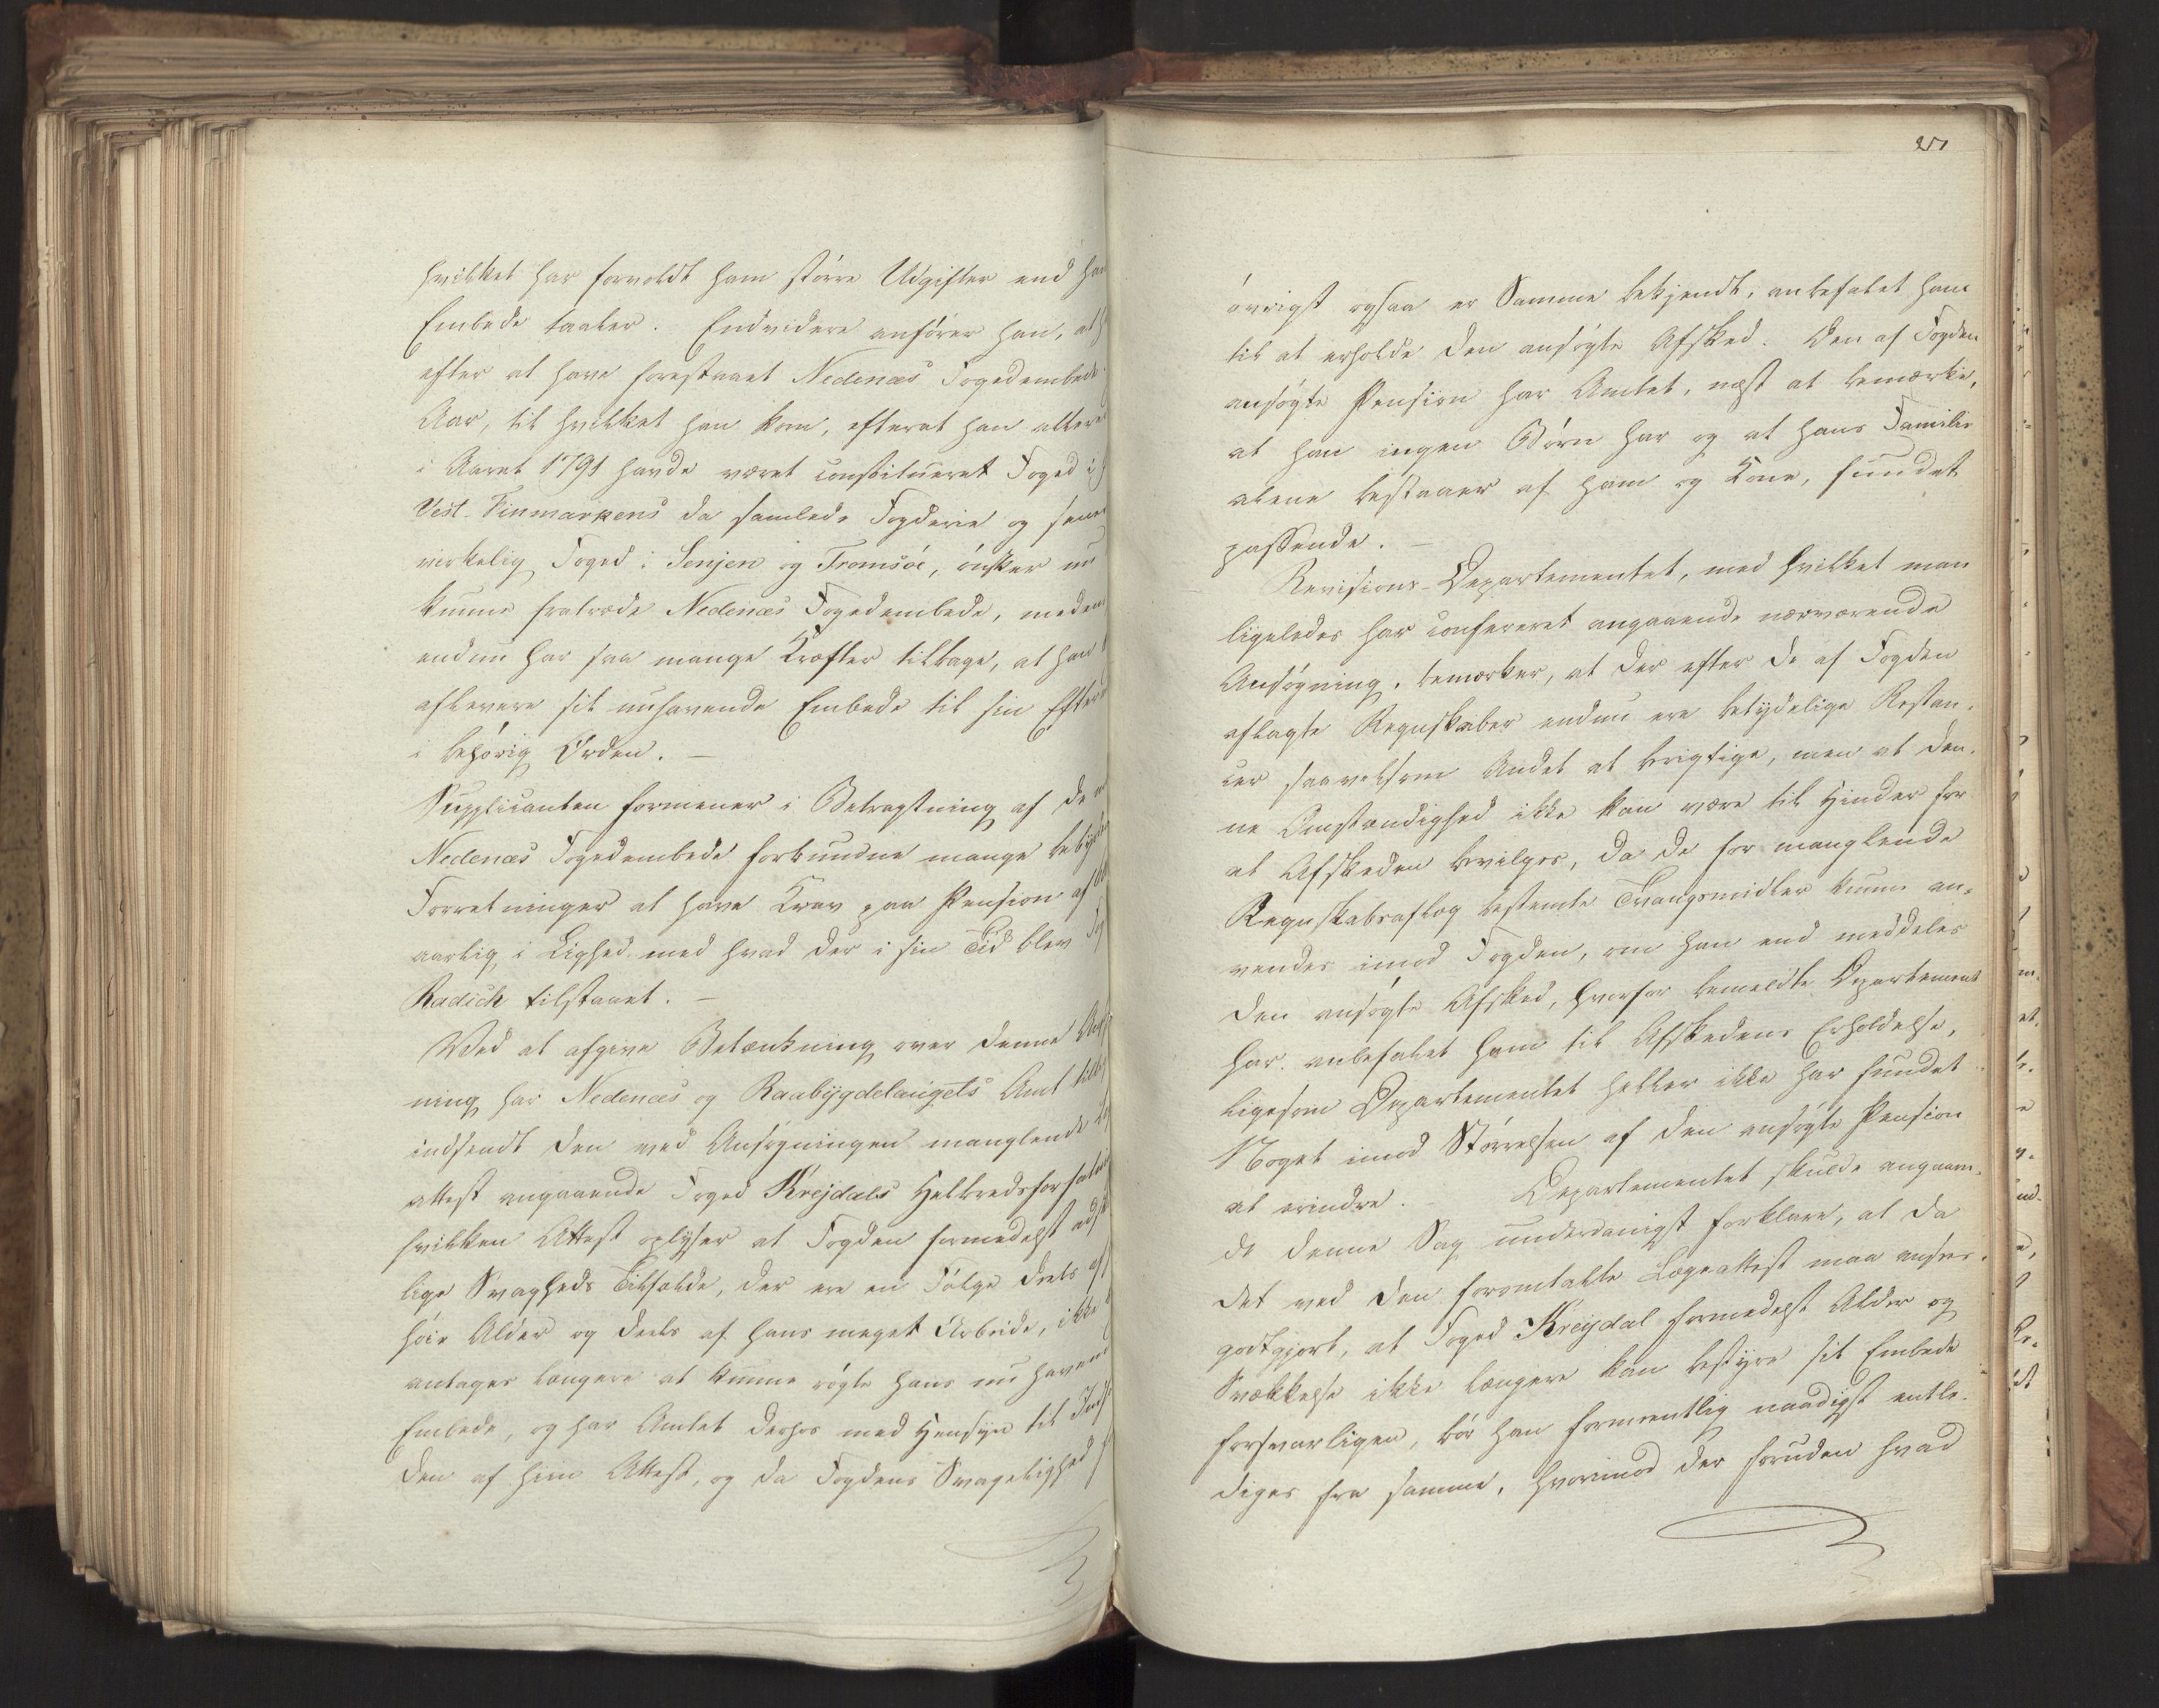 hvilket har forvoldt ham större Udgifter end
Embede taaler. Endvidere anförer han, at
efter at have forestaaet Nedenæs Fogedembede
Aar, til hvilket han kom, efterat han allere
i Aaret 1791 havde været constitueret Foged i
Vest-Finmarkens da samlede Fogderie og sene
virkelig Foged i Senjen og Tromsöe, önsker nu
kunne fratræde Nedenæs Fogedembede, medens
endnu har saa mange Kræfter tilbage, at han
aflevere sit nuhavende Embede til sin Efter
i behörig Orden. —
Supplicanten formener i Betragtning af de
Nedenæs Fogedembede forbundne mange betyde
Forretninger at have Krav paa Pension af
aarlig i Lighed med hvad der i sin Tid blev
Radich tilstaaet. —
Ved at afgive Betænkning over denne Ansög
ning har Nedenæs og Raabygdelaugets Amt
indsendt den ved Ansögningen manglende
attest angaaende Foged Krejdals Helbredsforfat
hvilken Attest oplyser at Fogden formedelst adskil
lige Svagheds Tilfælde, der ere en Fölge deels af
höie Alder og deels af hans meget Arbeide, ikke
antages længere at kunne rögte hans nu havend
Embede, og har Amtet derhos med Hensyn til
den af hiin Attest, og da Fogdens Svagelighed
251
övrigt ogsaa er Samme bekjendt, anbefalet ham
til at erholde den ansögte Afsked. Den af Fogden
ansögte Pension har Amtet, næst at bemærke,
at han ingen Börn har og at hans Familie
alene bestaaer af ham og Kone, fundet
passende. —
Revisions-Departementet, med hvilket man
ligeledes har confereret angaaende nærværende
Ansögning, bemærker, at der efter de af Fogden
aflagte Regnskaber endnu ere betydelige Restan-
cer saavelsom Andet at berigtige, men at den-
ne Omstændighed ikke kan være til Hinder for
at Afskeden bevilges, da de for manglende
Regnskabsaflæg bestemte Tvangsmidler kunne an-
vendes imod Fogden, om han end meddeles
den ansögte Afsked, hvorfor bemeldte Departement
har anbefalet ham til Afskedens Erholdelse,
ligesom Departementet heller ikke har fundet
Noget imod Störrelsen af den ansögte Pension
at erindre. — Departementet skulde angaaen-
de denne Sag underdanigst forklare, at da
det ved den foromtalte Lægeattest maa ansees
godtgjort, at Foged Krejdal formedelst Alder og
Svækkelse ikke længere kan bestyre sit Embede
forsvarligen, bör han formeentlig naadigst entle-
diges fra samme, hvorimod der foruden hvad